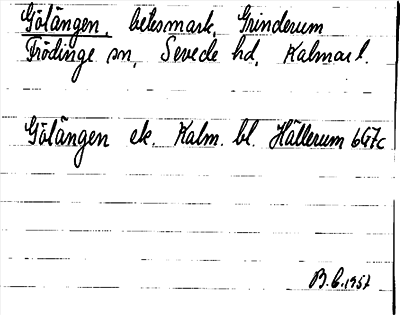 Gölängen, betesmark, Grinderum
Frödinge sn, Sevede hd, Kalmar l.
Gölängen ek. Kalm. bl. Hällerum 6G7c
B.C. 1957